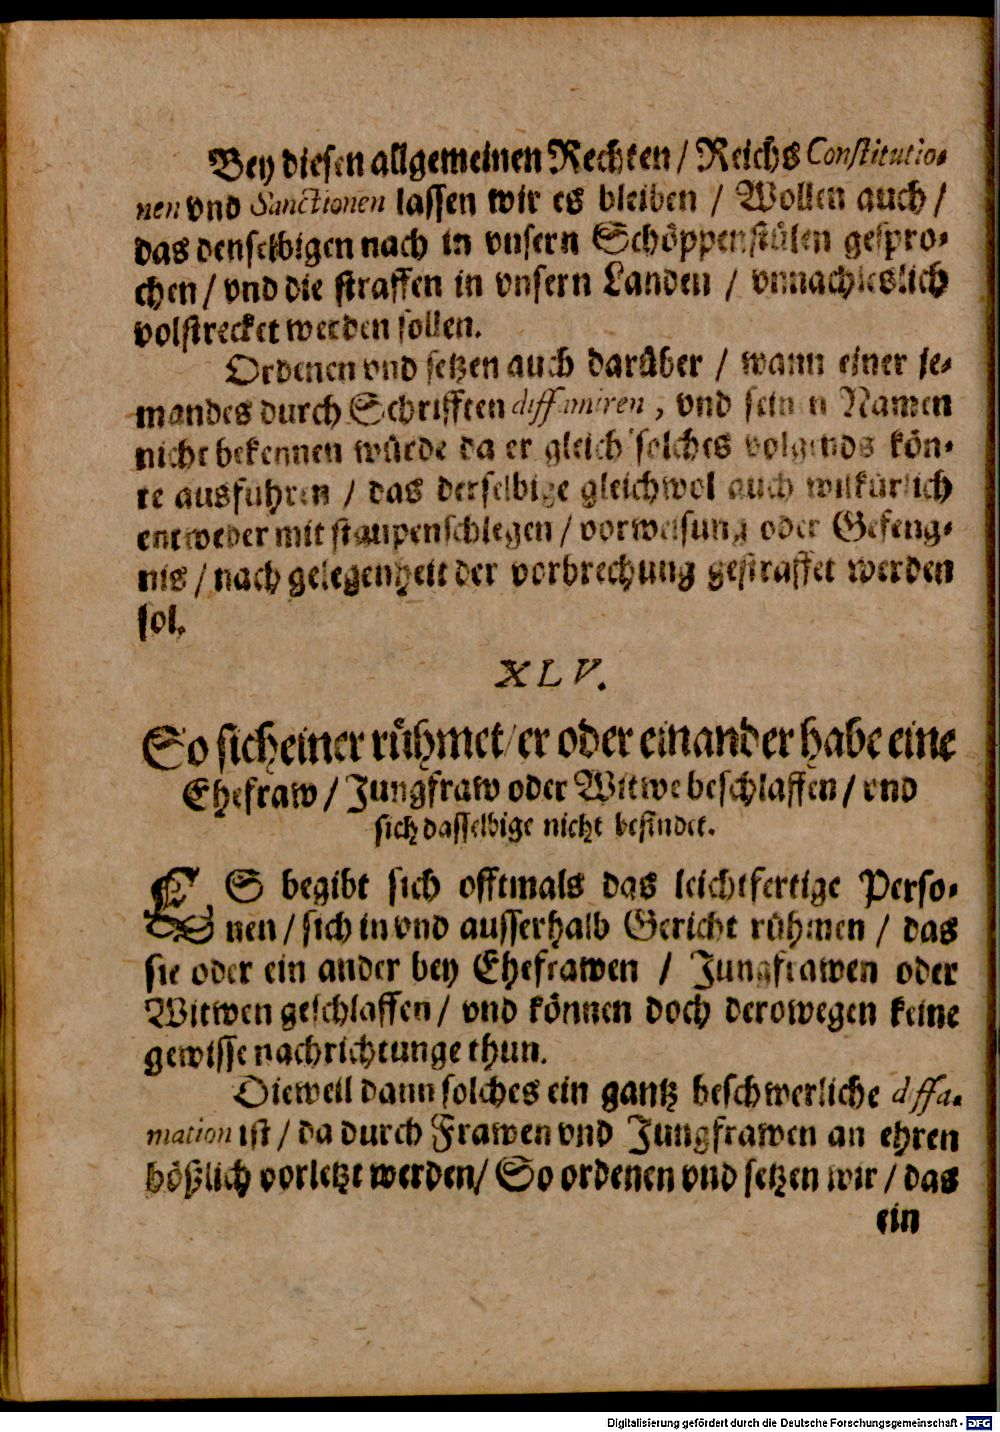 Bey diesen allgemeinen Rechten / Reichs Constitutio-
nen vnd Sanctionen lassen wir es bleiben / Wollen auch /
das denselbigen nach in vnsern Schöppenstülen gespro-
chen / vnd die straffen in vnsern Landen / vnnachleslich
volstrecket werden sollen.
Ordenen vnd setzen auch darüber / wann einer je-
mandes durch Schrifften diffamiren, vnd seinen Namen
nicht bekennen würde da er gleich solches volgends kön-
te ausfuhren / das derselbige gleichwol auch wilkürlich
entweder mit staupenschlegen / vorweisung oder Gefeng-
nis / nach gelegenheit der vorbrechung gestraffet werden
sol.
XLV.
So sich einer rühmet / er oder ein ander habe eine
Ehefraw / Jungfraw oder Witwe beschlaffen / vnd
sich dasselbige nicht befindet.
ES begibt sich offtmals das leichtfertige Perso-
nen / sich in vnd ausserhalb Gericht rühmen / das
sie oder ein ander bey Ehefrawen / Jungfrawen oder
Witwen geschlaffen / vnd können doch derowegen keine
gewisse nachrichtunge thun.
Dieweil dann solches ein gantz beschwerliche diffa-
mation ist / da durch Frawen vnd Jungfrawen an ehren
hößlich vorletzt werden / So ordenen vnd setzen wir / das
ein
Digitalisierung gefördert durch die Deutsche Forschungsgemeinschaft - DFG